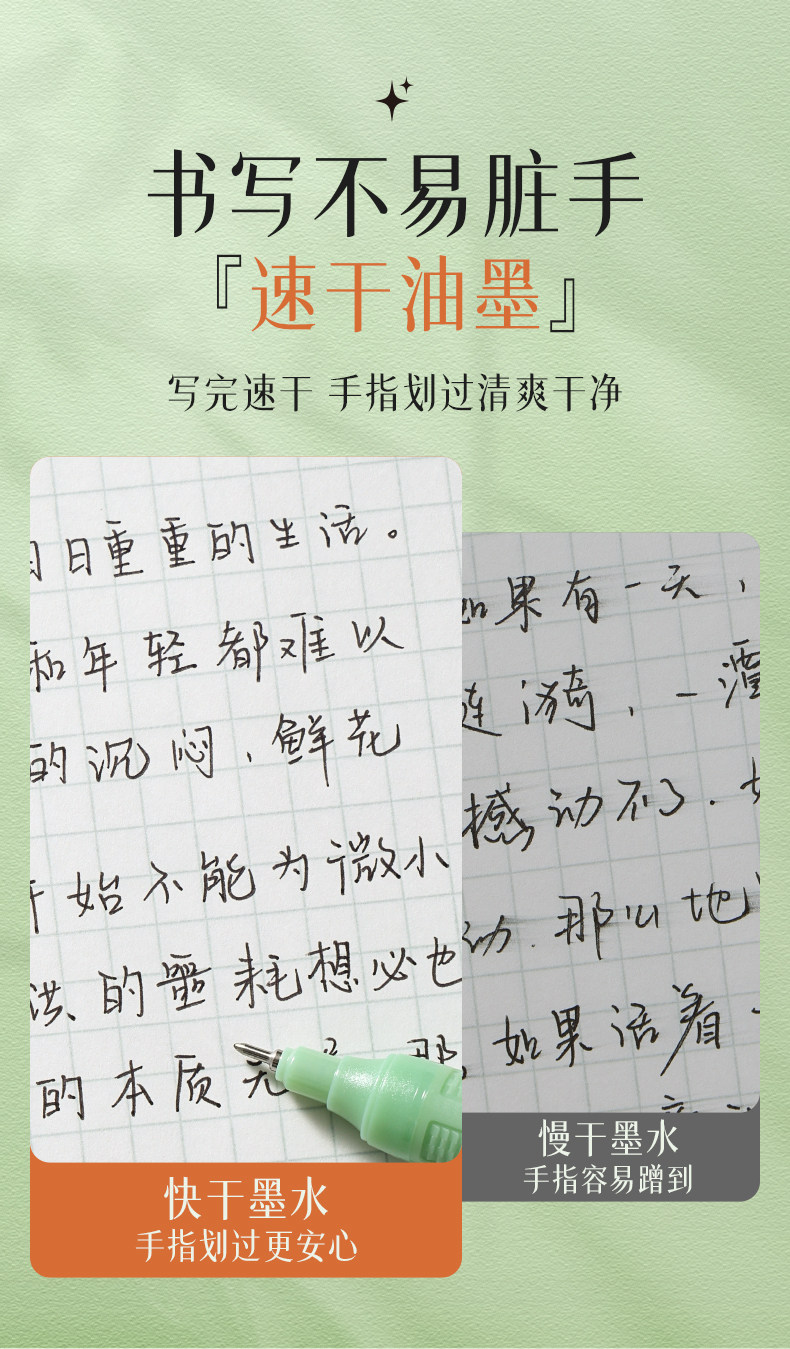 书写不易脏手
『速干油墨』
写完速干 手指划过清爽干净
日重重的生活。
和年轻都难以
的沉闷、鲜花
开始不能为微小
洪、的噩耗想必也
的本质 那
如果有一天，
涟漪，一潭
撼动不了.
动.那么地
如果活着
快干墨水
手指划过更安心
慢干墨水
手指容易蹭到